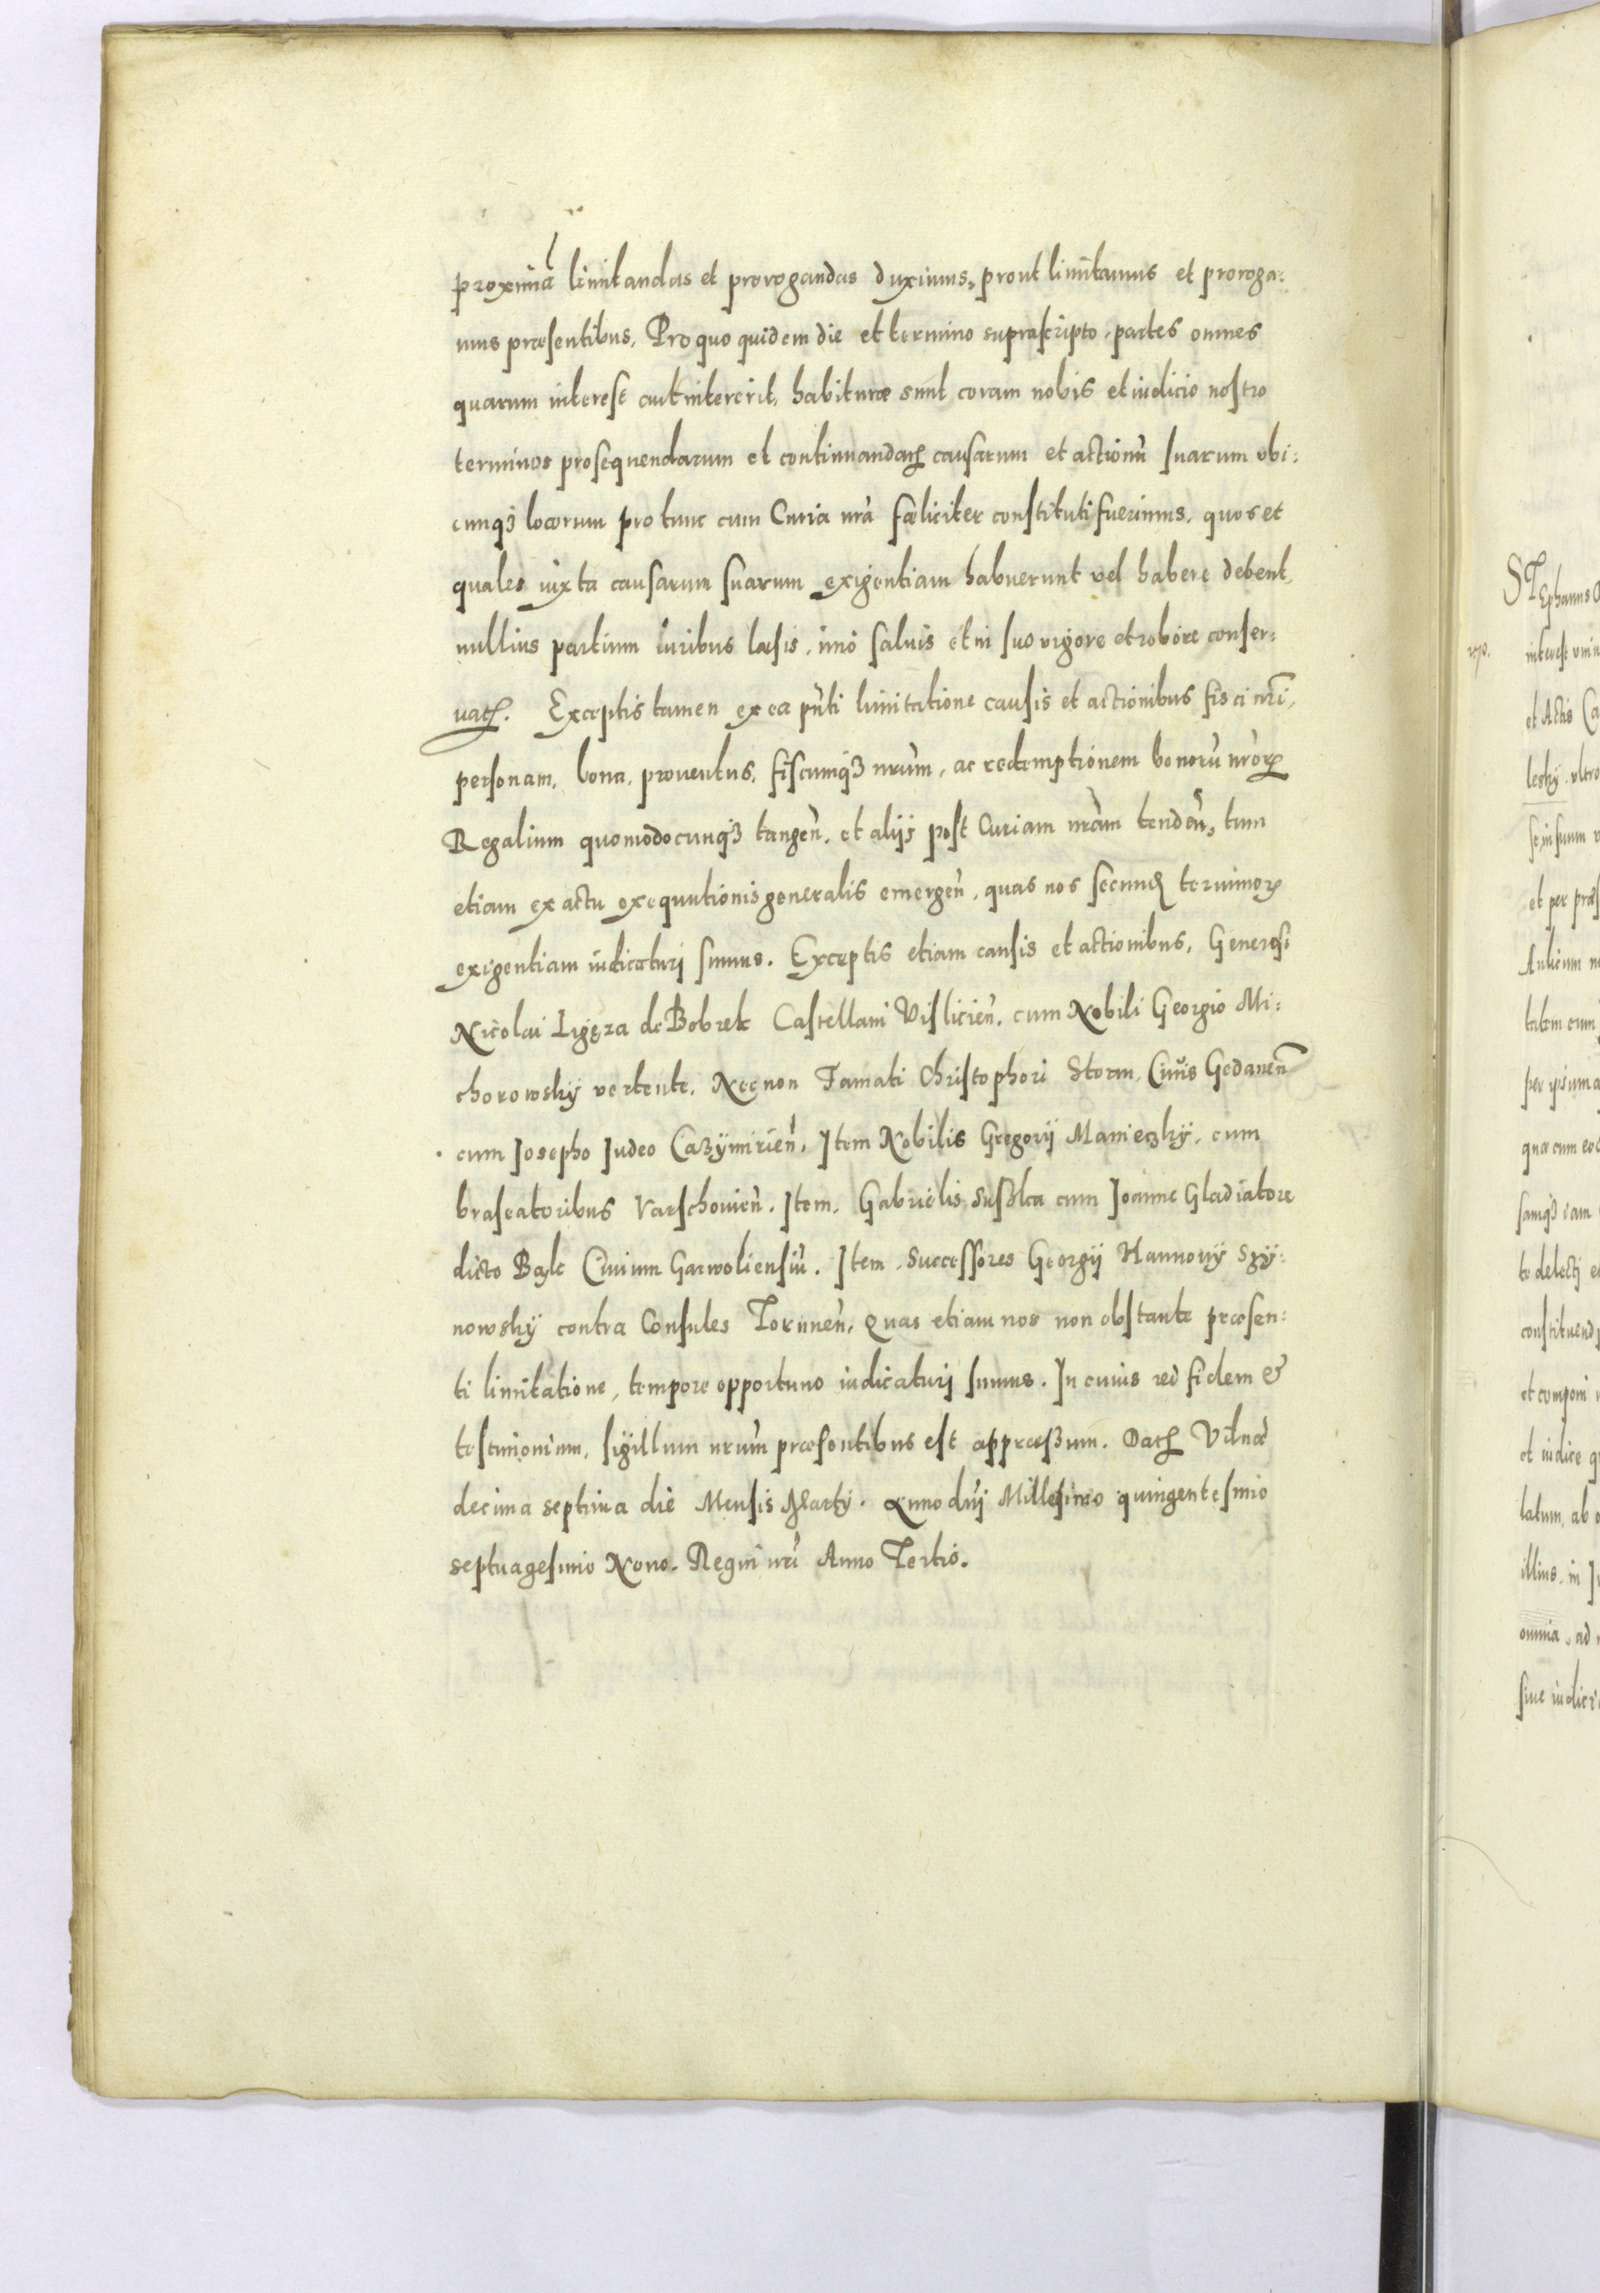 proxima limitandas et prorogandas duximus, prout limitamus et proroga:
mus præsentibus. Pro quo quidem die et termino suprascripto, partes omnes
quarum interest aut intererit, habituræ sunt coram nobis et iudicio nostro
terminos prosequendarum et continuandaꝝ causarum et actionũ suarum ubi:
cunqꝫ locorum pro tunc cum Curia nrã fœliciter constituti fuerimus, quos et
quales iuxta causarum suarum exigentiam habuerunt vel habere debent,
nullius partium iuribus læsis, imo saluis et in suo vigore et robore conser:
uatꝭ. Exceptis tamen ex ea pñti limitatione causis et actionibus fisci nrĩ,
personam, bona, prouentus, fiscumqꝫ nrũm, ac redemptionem bonorũ nrõrꝝ
Regalium quomodocunqꝫ tangeñ, et alijs post Curiam nrãm tendeñ, tum
etiam ex actu exequutionis generalis emergeñ, quas nos secund terminorꝝ
exigentiam iudicaturj sumus. Exceptis etiam causis et actionibus, Generosi
Nicolai Ligęza de Bobrek Castellani Visliciеñ, cum Nobili Georgio Mi:
chorowsky vertente. Necnon Famati Christophori Storm, Ciuis Gedaneñ
cum Josepho Judeo Cazÿmirieñ, Item Nobilis Gregorÿ Manieczkÿ, cum
braseatoribus Varschouieñ. Item, Gabrielis Susolka cum Joanne Gladiatore
dicto Bayk Ciuium Garwoliensiũ. Item, Successores Georgÿ Hannowÿ Szÿ:
nowskÿ contra Consules Toruneñ, Quas etiam nos non obstante præsen:
ti limitatione, tempore opportuno iudicaturj sumus. In cuius rei fidem &
testimonium, sigillum nrũm præsentibus est appræssum. Datꝭ Vilnæ
decima septima die Mensis Martÿ. Anno dnj Millesimo quingentesimo
septuagesimo Nono. Regni nrĩ Anno Tertio.
STEphanus
interest uni
et Actis Ca
leskÿ, ultro
se in suum
et per præs
Aulicum
tatem cum
per ipsum a
quæ cum eo
samqꝫ iam
to delectj
constituend
et componi
et iudice
latum, ab
illius, in
omnia, ad
siue iudici